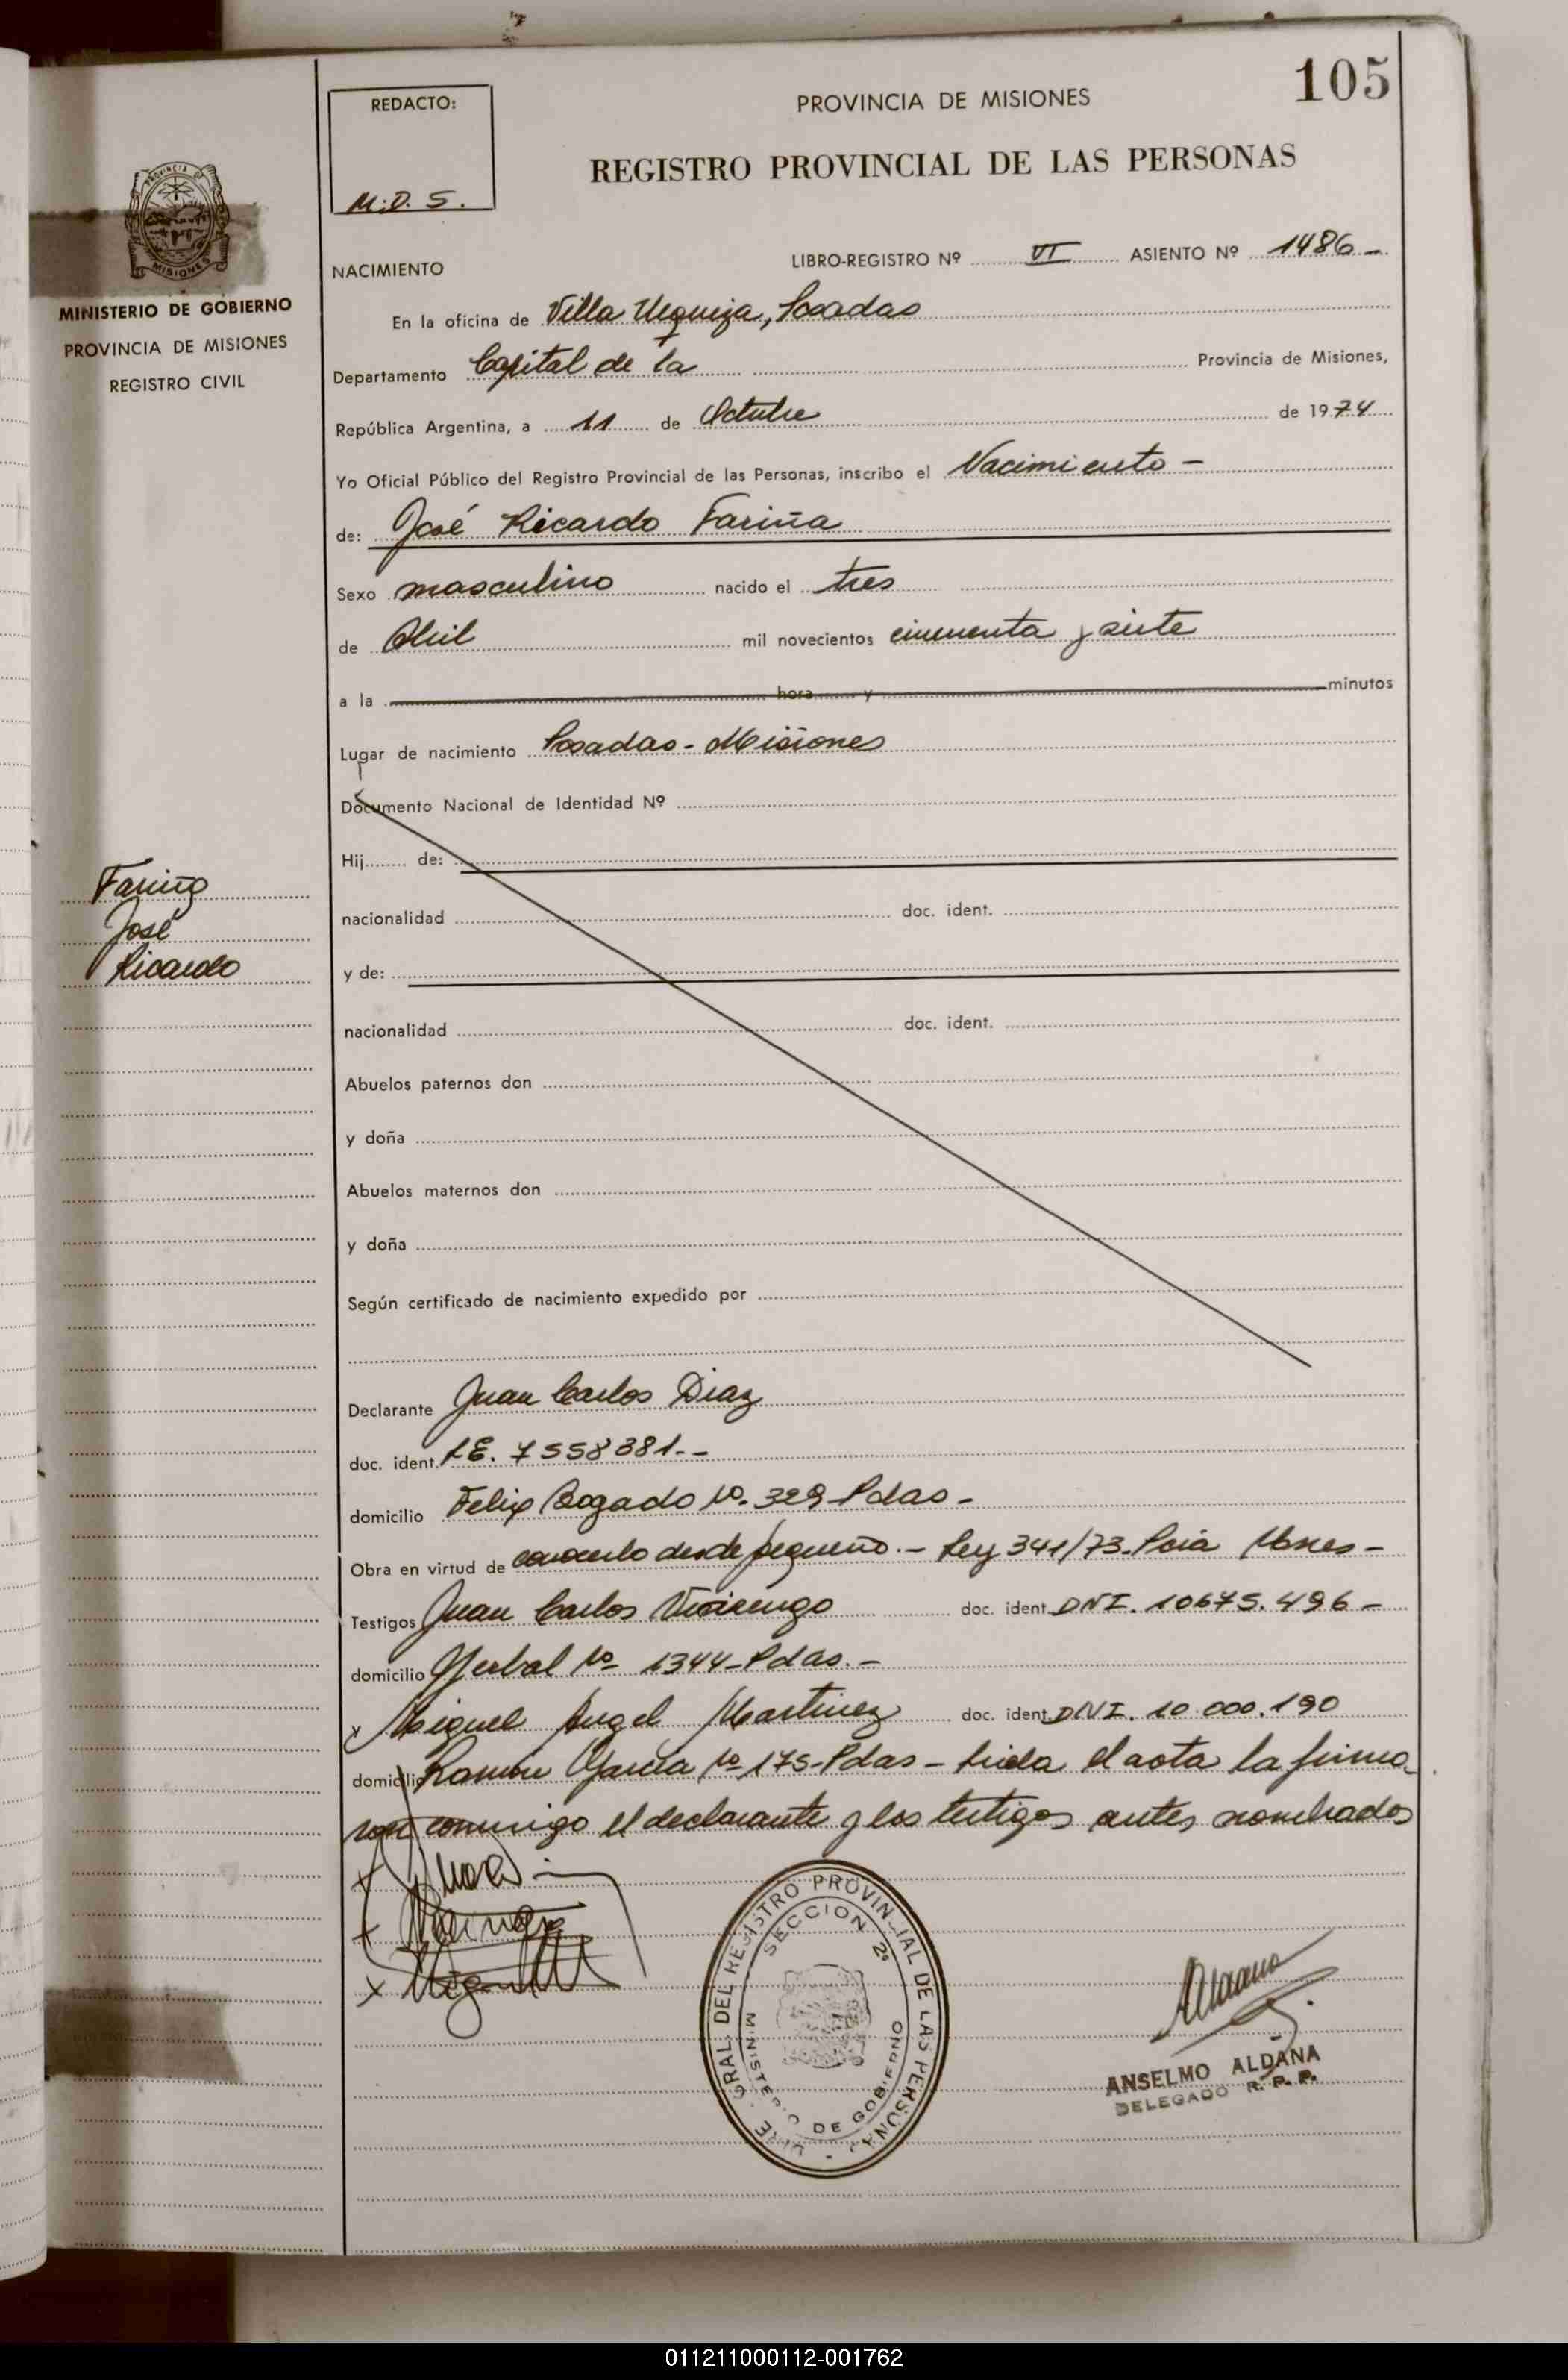 105
REDACTO:
M.D.S.
PROVINCIA DE MISIONES
REGISTRO PROVINCIAL DE LAS PERSONAS
PROVINCIA DE
MISIONES
MINISTERIO DE GOBIERNO
PROVINCIA DE MISIONES
REGISTRO CIVIL
NACIMIENTO
LIBRO-REGISTRO Nº VI ASIENTO Nº 1486-
En la oficina de Villa Urquiza, Posadas
Departamento Capital de la Provincia de Misiones,
República Argentina, a 11 de Octubre de 1974
Yo Oficial Público del Registro Provincial de las Personas, inscribo el Nacimiento -
de: José Ricardo Fariña
Sexo masculino nacido el tres
de Abril mil novecientos cincuenta y siete
a la hora y minutos
Lugar de nacimiento Posadas - Misiones
Documento Nacional de Identidad Nº
Hij de:
Fariña
José
Ricardo
nacionalidad doc. ident.
y de:
nacionalidad doc. ident.
Abuelos paternos don
y doña
Abuelos maternos don
y doña
Según certificado de nacimiento expedido por
Declarante Juan Carlos Diaz
doc. ident. LE. 7558381.-
domicilio Felix Bogado Nº. 329 Pdas -
Obra en virtud de conocerlo desde pequeño.- Ley 341/73. Pcia Mnes -
Testigos Juan Carlos doc. ident. DNI. 10675.496 -
domicilio Yerbal Nº 1344 - Pdas. -
y Miguel Angel Martinez doc. ident. DNI. 10.000.190
domicilio Ramón García Nº 175 - Pdas - Leida el acta la firma
con conmigo el declarante y los testigos antes nombrados
DIRE. GRAL. DEL REGISTRO PROVINCIAL DE LAS PERSONAS
SECCION 2ª
MINISTERIO DE GOBIERNO
ANSELMO ALDANA
DELEGADO R. P. P.
011211000112-001762